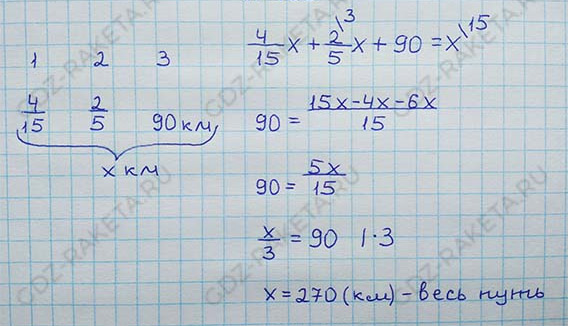 1 2 3
4/15 2/5 90 км
x км
4/15 x + 2/5 \3 x + 90 = x \15
90 = 15x-4x-6x/15
90 = 5x/15
x/3 = 90 | · 3
x = 270 (км) - весь путь
GDZ-RAKETA.RU